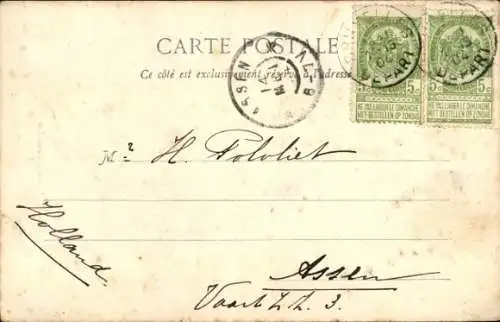 CARTE POSTALE
Ce côté est exclusivement réservé à l'adresse
5c 5c
NE PAS LIVRER LE DIMANCHE NE PAS LIVRER LE DIMANCHE
NIET BESTELLEN OP ZONDAG NIET BESTELLEN OP ZONDAG
BRUXELLES
DEPART DEPART
ASSEN
M H.
Holland
Assen
Vaart Z.Z. 3.